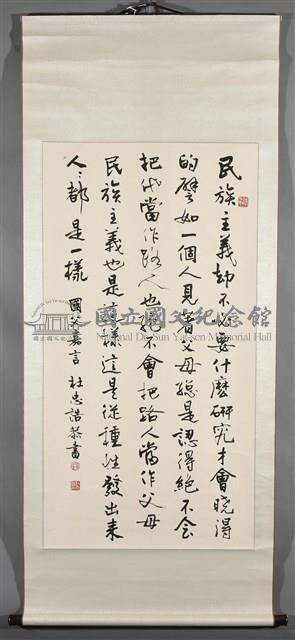 民族主義却不必要什麼研究才會曉得
的譬如一個人見着父母總是認得絕不會
把他當作路人也絕不會把路人當作父母
民族主義也是這樣這是從種性發出來
人々都是一樣 國父嘉言 杜忠誥恭書
國立國父紀念館
National Dr. Sun Yat-sen Memorial Hall